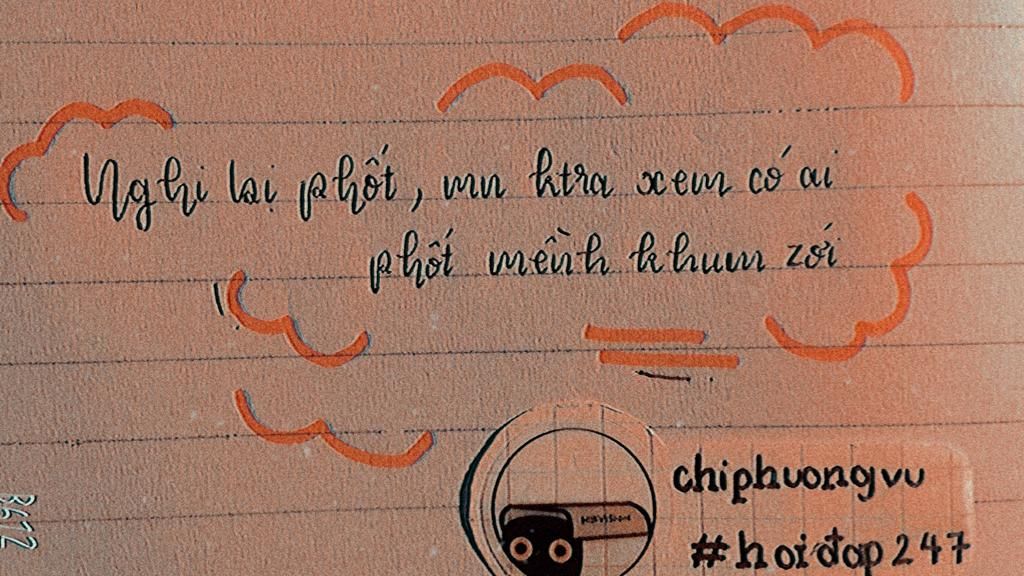 Nghi lại phốt, mn ktra xem có ai
phốt mềnh khum zới
chiphuongvu
#hoiđap247